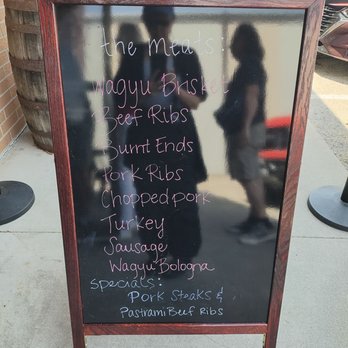 the meats:
Wagyu Brisket
Beef Ribs
Burnt Ends
Pork Ribs
Chopped pork
Turkey
Sausage
Wagyu Bologna
Specials:
Pork Steaks &
Pastrami Beef Ribs